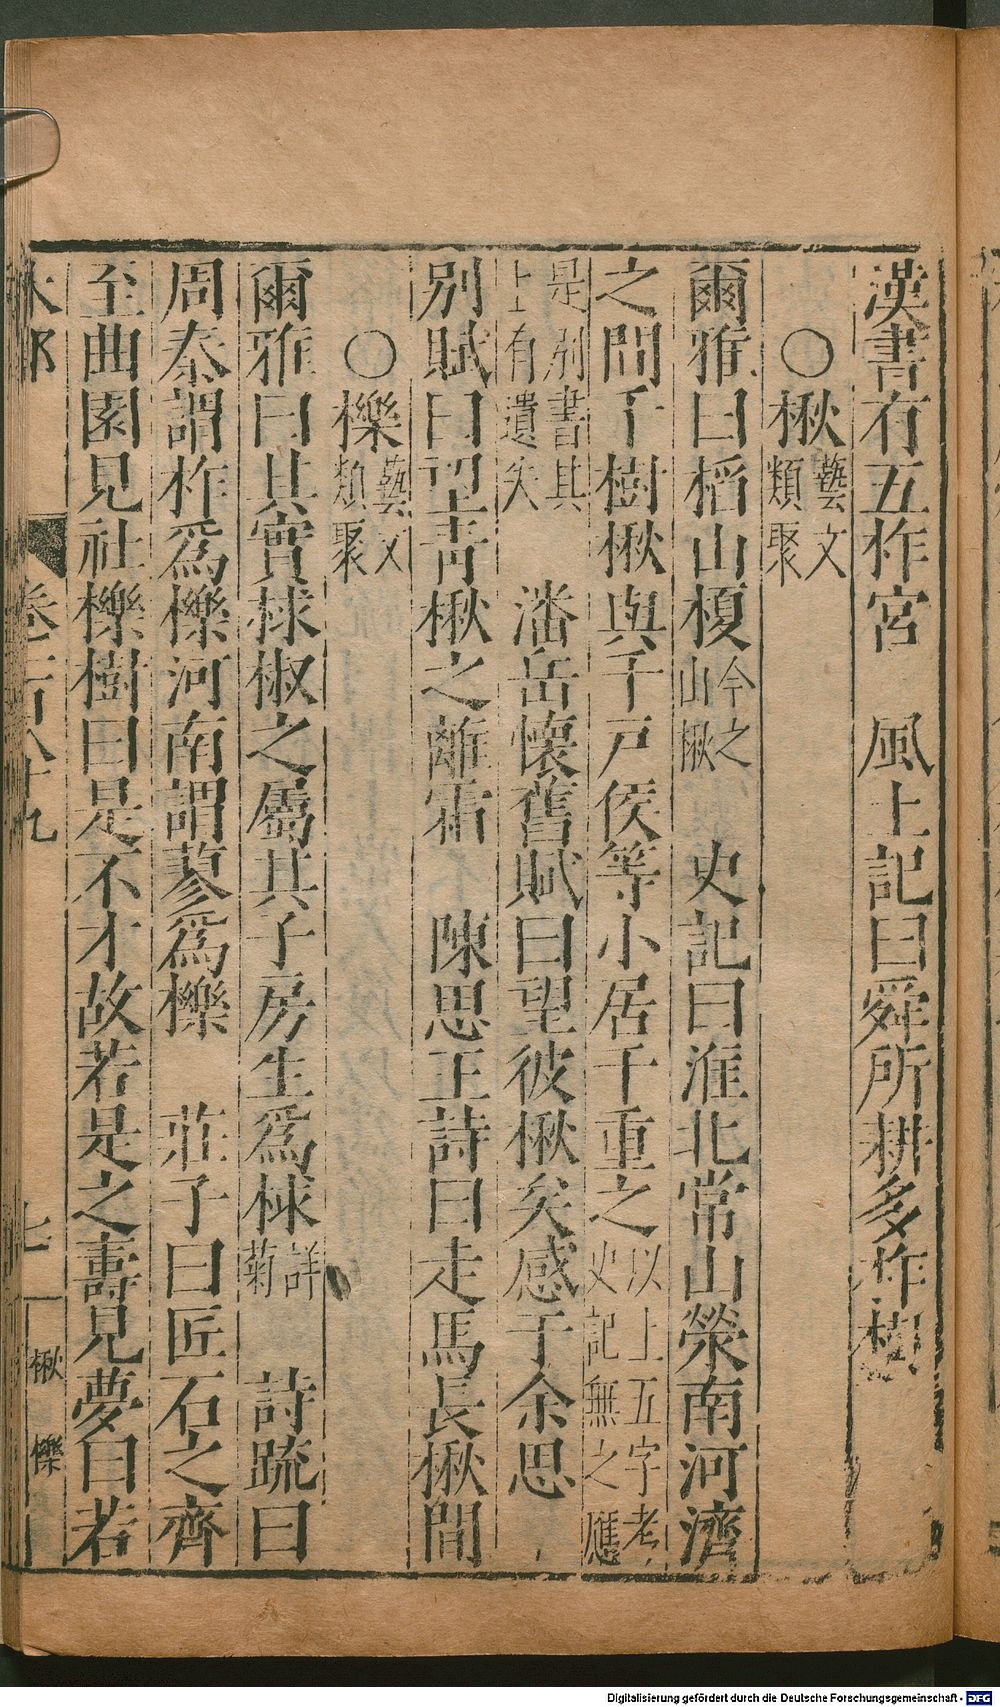 漢書有五柞宮　風土記曰舜所耕多柞樹
〇楸藝文類聚
爾雅曰槄山榎今之山楸　史記曰淮北常山滎南河濟
之間千樹楸與千戸侯等小居千重之以上五字考史記無之應
是別書其上有遺失　潘岳懷舊賦曰望彼楸矣感于余思
別賦曰望青楸之離霜　陳思王詩曰走馬長楸間
〇櫟藝文類聚
爾雅曰其實梂椒之屬其子房生爲梂詳菊　詩疏曰
周秦謂柞爲櫟河南謂蓼爲櫟　莊子曰匠石之齊
至曲園見社櫟樹曰是不才故若是之壽見夢曰若
木部　卷一百八十九　七　楸　櫟
Digitalisierung gefördert durch die Deutsche Forschungsgemeinschaft - DFG